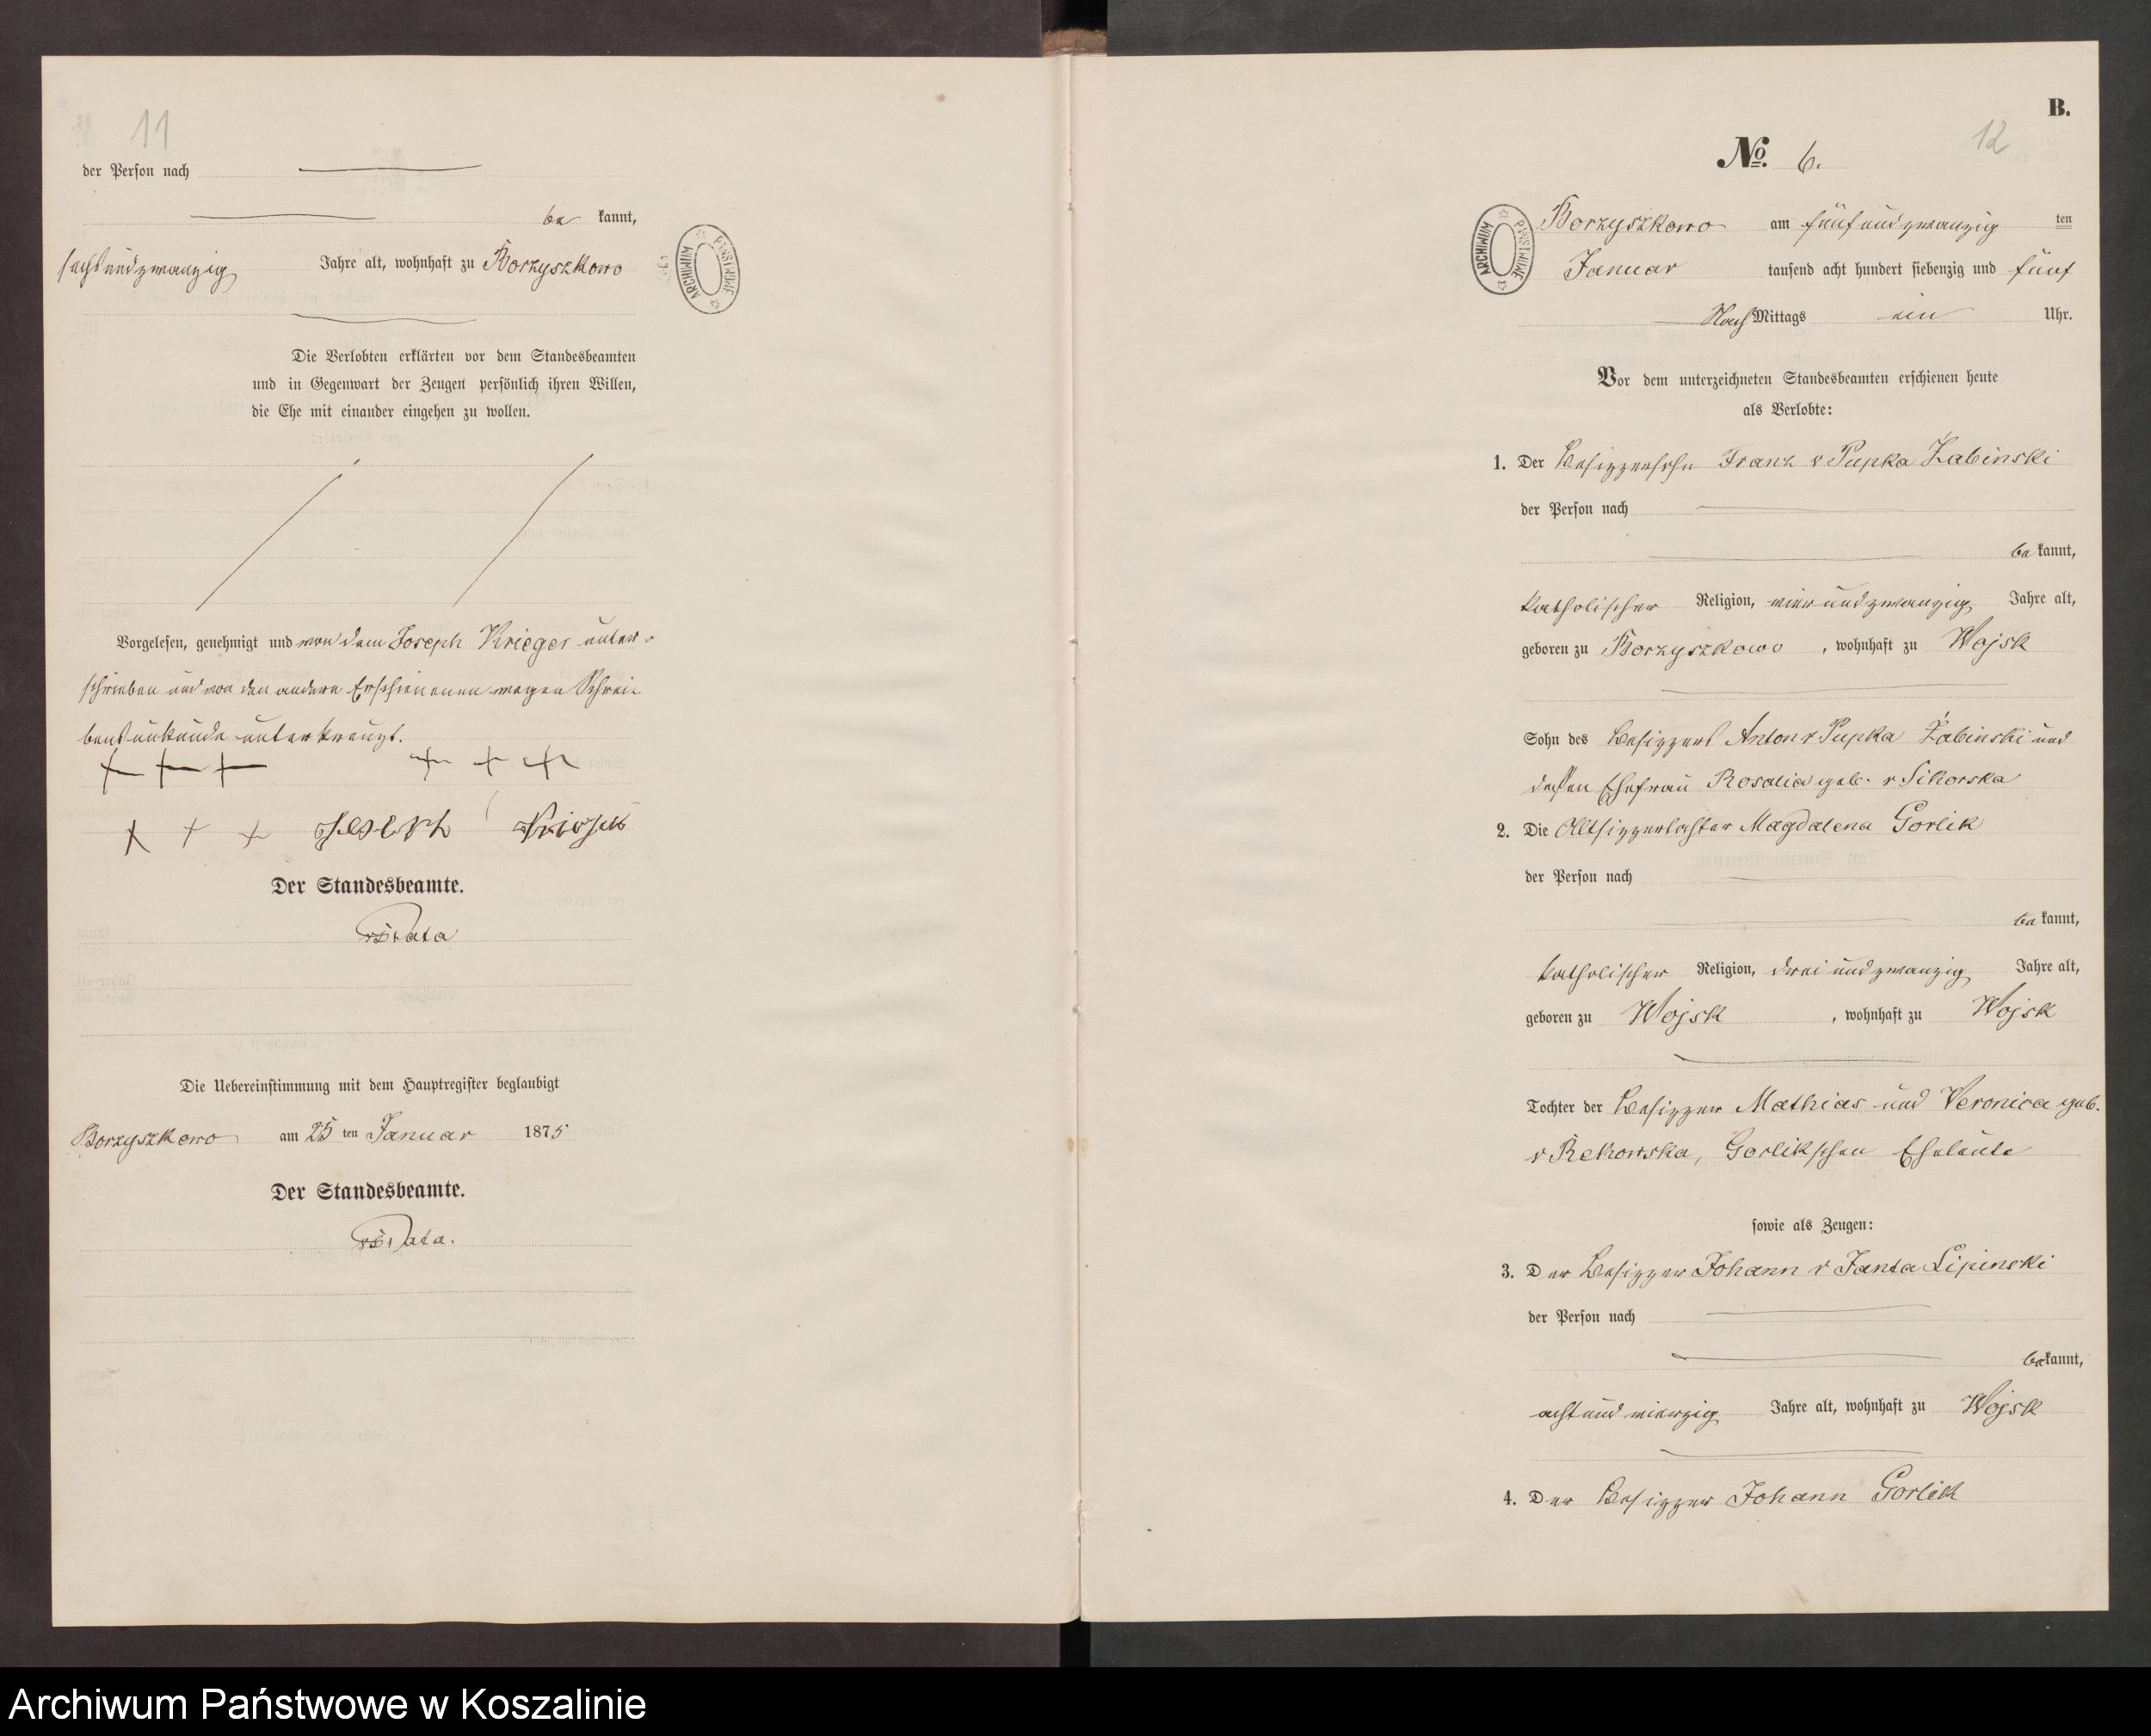 11
der Person nach
be kannt,
sechsundzwanzig Jahre alt, wohnhaft zu Borzyszkowo
ARCHIWUM PAŃSTWOWE
Die Verlobten erklärten vor dem Standesbeamten
und in Gegenwart der Zeugen persönlich ihren Willen,
die Ehe mit einander eingehen zu wollen.
Vorgelesen, genehmigt und von dem Joseph Krieger unter-
schrieben und von den andern Erschienenen wegen Schrei-
bensunkunde unterkreuzt.
+ + + + + +
+ + + Joseph
Der Standesbeamte.
Die Uebereinstimmung mit dem Hauptregister beglaubigt
Borzyszkowo am 25 ten Januar 1875
Der Standesbeamte.
B.
12
No. 6.
Borzyszkowo am fünfundzwanzig ten
Januar tausend acht hundert siebenzig und fünf
Nach Mittags ein Uhr.
ARCHIWUM PAŃSTWOWE
Vor dem unterzeichneten Standesbeamten erschienen heute
als Verlobte:
1. Der Besizzersohn Franz v Pupka Żabinski
der Person nach
be kannt,
katholischer Religion, vierundzwanzig Jahre alt,
geboren zu Borzyszkowo, wohnhaft zu Wojsk
Sohn des Besizzers Anton v Pupka Żabinski und
dessen Ehefrau Rosalia geb. v Sikorska
2. Die Altsizzertochter Magdalena Gorlik
der Person nach
be kannt,
katholischer Religion, dreiundzwanzig Jahre alt,
geboren zu Wojsk, wohnhaft zu Wojsk
Tochter der Besizzer Mathias und Veronica geb.
v Rekowska, Gorlikschen Eheleute
sowie als Zeugen:
3. Der Besizzer Johann v Janta Lipinski
der Person nach
be kannt,
achtundvierzig Jahre alt, wohnhaft zu Wojsk
4. Der Besizzer Johann Gorlik
Archiwum Państwowe w Koszalinie